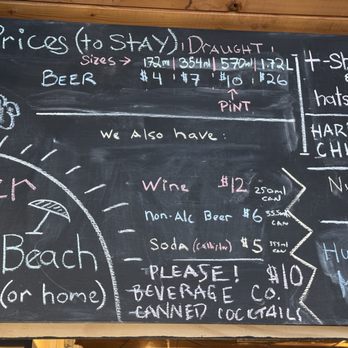 Prices (to STAY) | DRAUGHT!
Sizes → 172ml | 354ml | 570ml | 1.72L
BEER $4 $7 $10 $26
↑
PINT
We Also have:
Wine $12 250ml CAN
non-Alc Beer $6 355ml CAN
Soda $5 355ml CAN
PLEASE! $10
BEVERAGE CO.
CANNED COCKTAILS
Beach
(or home)
hats